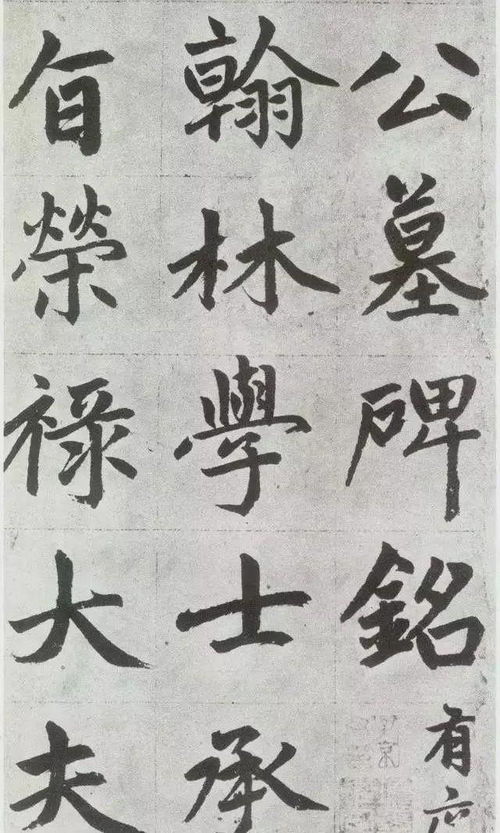 公墓碑銘有
翰林學士承
旨榮祿大夫